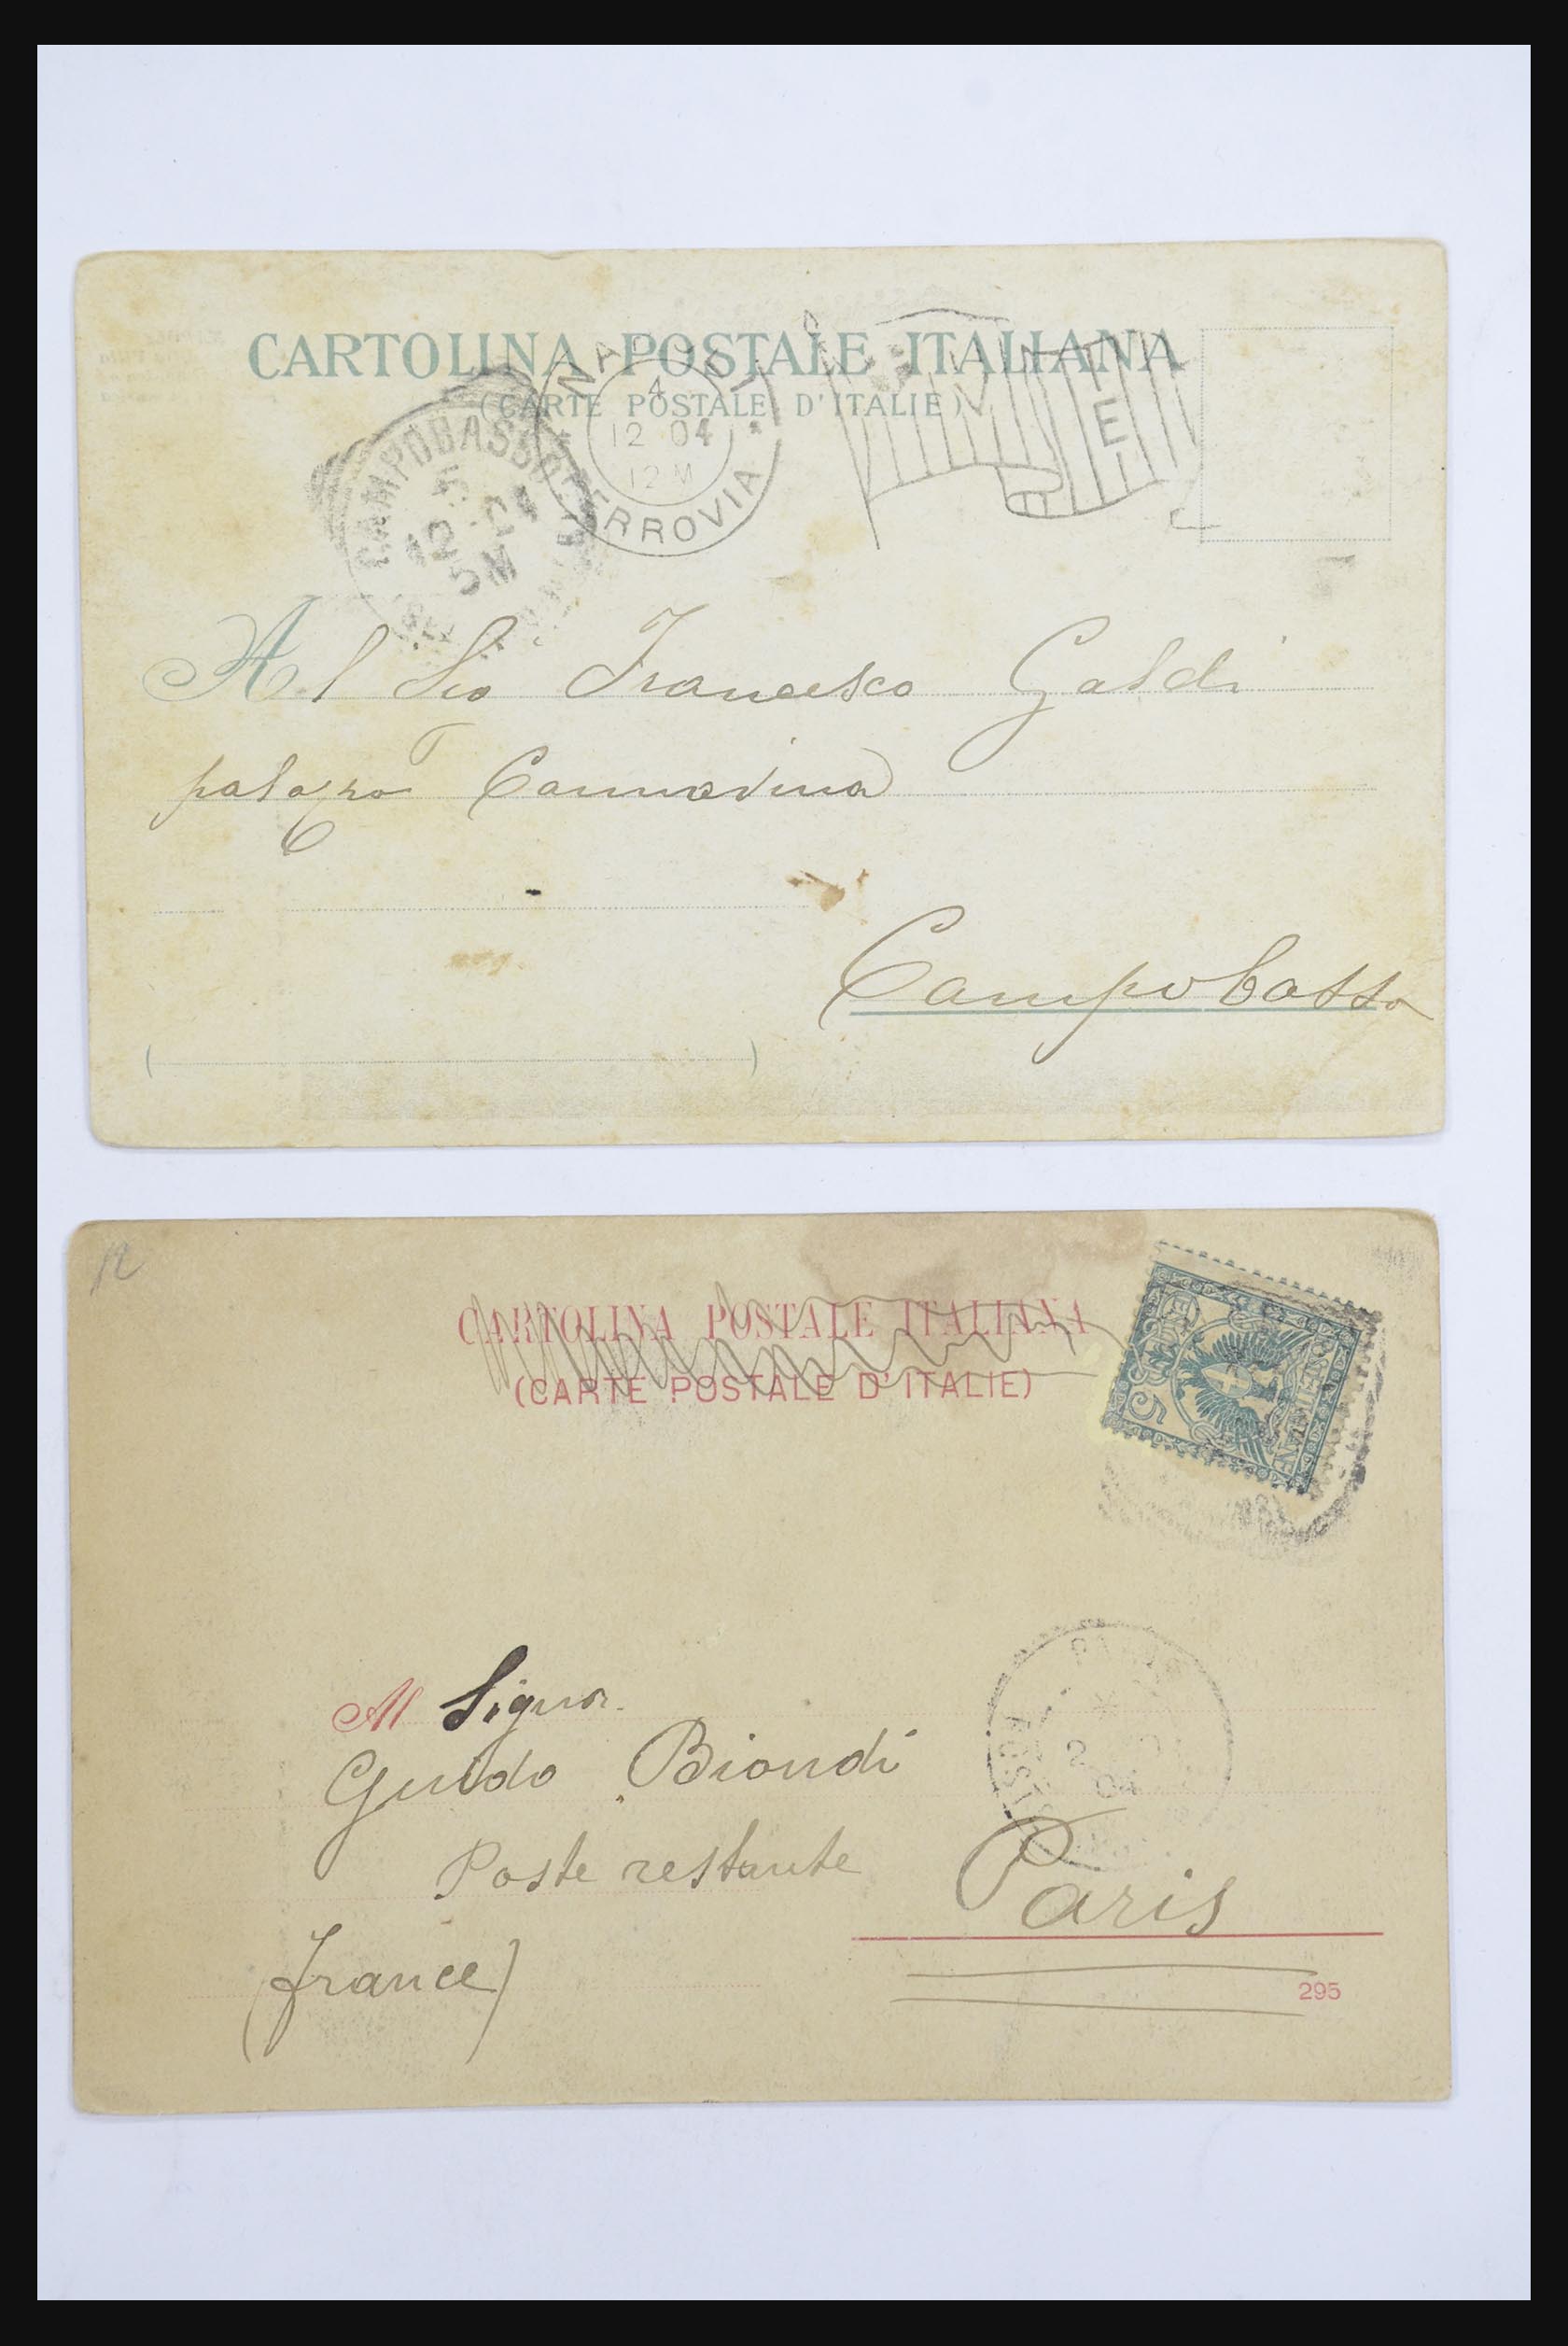 CARTOLINA POSTALE ITALIANA
(CARTE POSTALE D'ITALIE)
NAPOLI
4
12 04
12 M
FERROVIA
CAMPOBASSO
5
12 04
5M
Al Sig Francesco Galdi
palazzo Cannavina
Campobasso
12
CARTOLINA POSTALE ITALIANA
(CARTE POSTALE D'ITALIE)
POSTE ITALIANE
5
Al Signor
Guido Biondi
Poste restante
Paris
(france)
295